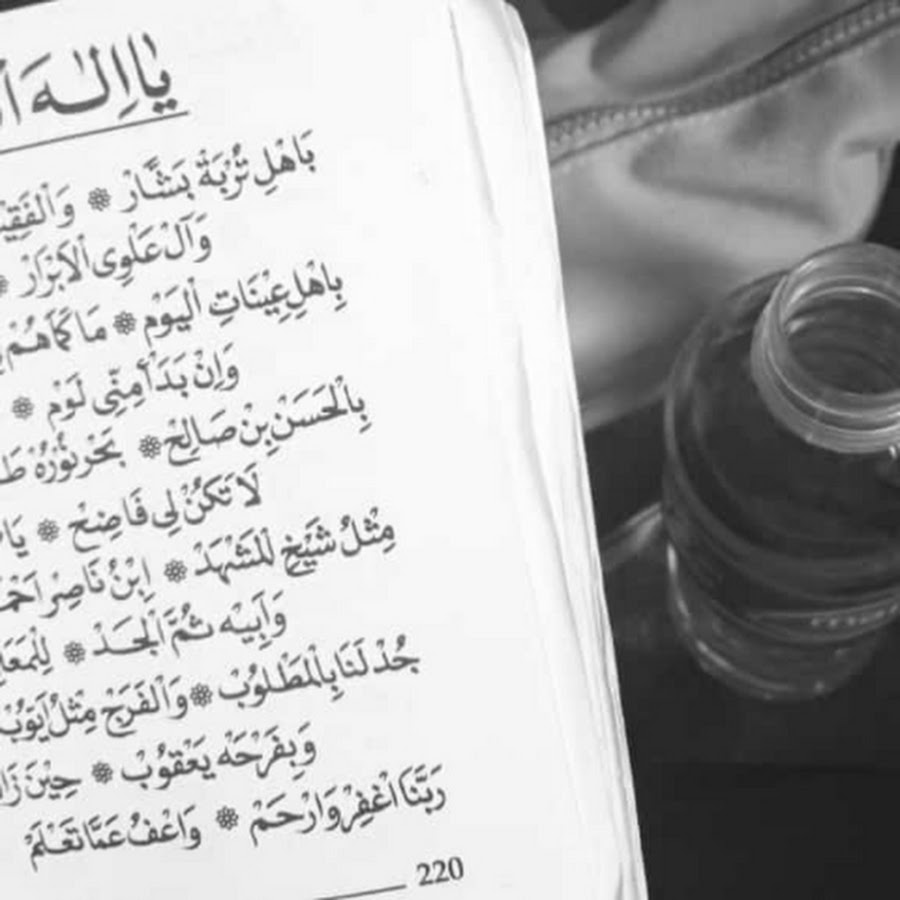 يَا اِلٰـهَ
بَاهْلِ تُرْبَةْ بَشَّارْ ❁ وَالْفَقِيْ
وَآلْ عَلْوِى الْاَبْرَارْ ❁
بِاهْلِ عِيْنَاتِ الْيَوْم ❁ مَا كَمَاهُمْ
وَاِنْ بَدَأ مِنِّى لَوْم ❁
بِالْحَسَنْ بِنْ صَالِحْ ❁ بَحْرِ نُوْرُهْ
لَا تَكُنْ لِى فَاضِحْ ❁
مِثْلُ شَيْخِ لْمَشْهَدْ ❁ اِبْنُ نَاصِرْ
وَاَبِيْه ثُمَّ الْجَدْ ❁
جُدْ لَنَا بِالْمَطْلُوبْ ❁ وَالْفَرَجْ مِثْلُ اَيُّوْبْ
وَبِفَرْحَه يَعْقُوبْ ❁ حِيْنَ
رَبَّنَا اغْفِرْ وَارْحَمْ ❁ وَاعْفُ عَمَّا تَعْلَمْ
220